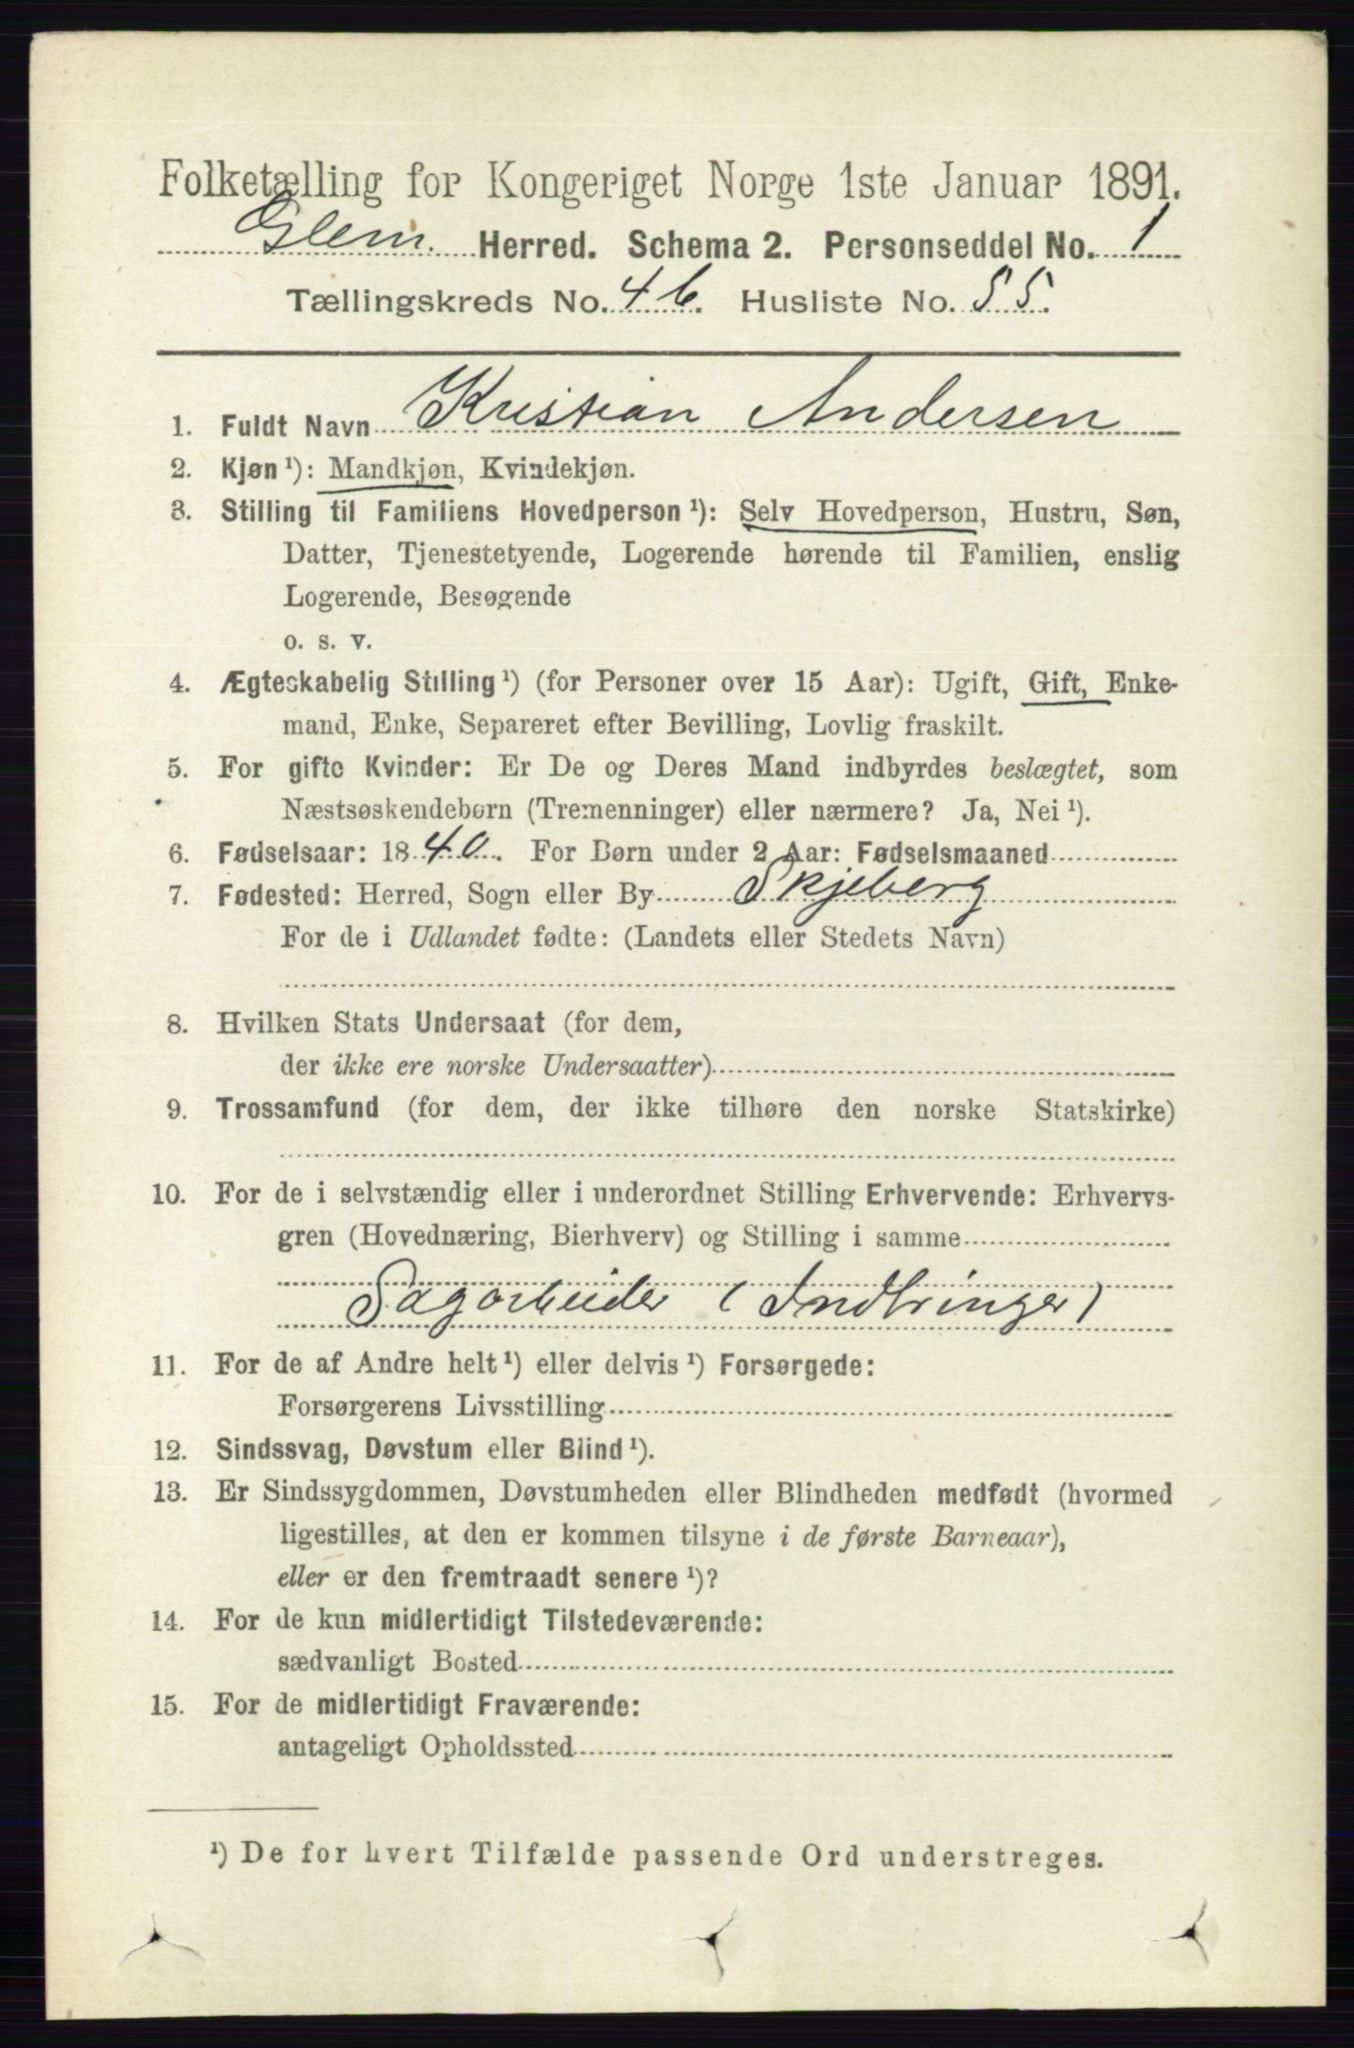 Folketælling for Kongeriget Norge 1ste Januar 1891.
Glem. Herred. Schema 2. Personseddel No. 1
Tællingskreds No. 46. Husliste No. 55.
1. Fuldt Navn Kristian Andersen
2. Kjøn ¹): Mandkjøn, Kvindekjøn.
3. Stilling til Familiens Hovedperson ¹): Selv Hovedperson, Hustru, Søn,
Datter, Tjenestetyende, Logerende hørende til Familien, enslig
Logerende, Besøgende
o. s. v.
4. Ægteskabelig Stilling ¹) (for Personer over 15 Aar): Ugift, Gift, Enke-
mand, Enke, Separeret efter Bevilling, Lovlig fraskilt.
5. For gifte Kvinder: Er De og Deres Mand indbyrdes beslægtet, som
Næstsøskendebørn (Tremenninger) eller nærmere? Ja, Nei ¹).
6. Fødselsaar: 1840. For Børn under 2 Aar: Fødselsmaaned
7. Fødested: Herred, Sogn eller By Skjeberg
For de i Udlandet fødte: (Landets eller Stedets Navn)
8. Hvilken Stats Undersaat (for dem,
der ikke ere norske Undersaatter)
9. Trossamfund (for dem, der ikke tilhøre den norske Statskirke)
10. For de i selvstændig eller i underordnet Stilling Erhvervende: Erhvervs-
gren (Hovednæring, Bierhverv) og Stilling i samme
Sagarbeider (Indbringer)
11. For de af Andre helt ¹) eller delvis ¹) Forsørgede:
Forsørgerens Livsstilling
12. Sindssvag, Døvstum eller Blind ¹).
13. Er Sindssygdommen, Døvstumheden eller Blindheden medfødt (hvormed
ligestilles, at den er kommen tilsyne i de første Barneaar),
eller er den fremtraadt senere ¹)?
14. For de kun midlertidigt Tilstedeværende:
sædvanligt Bosted
15. For de midlertidigt Fraværende:
antageligt Opholdssted
¹) De for hvert Tilfælde passende Ord understreges.